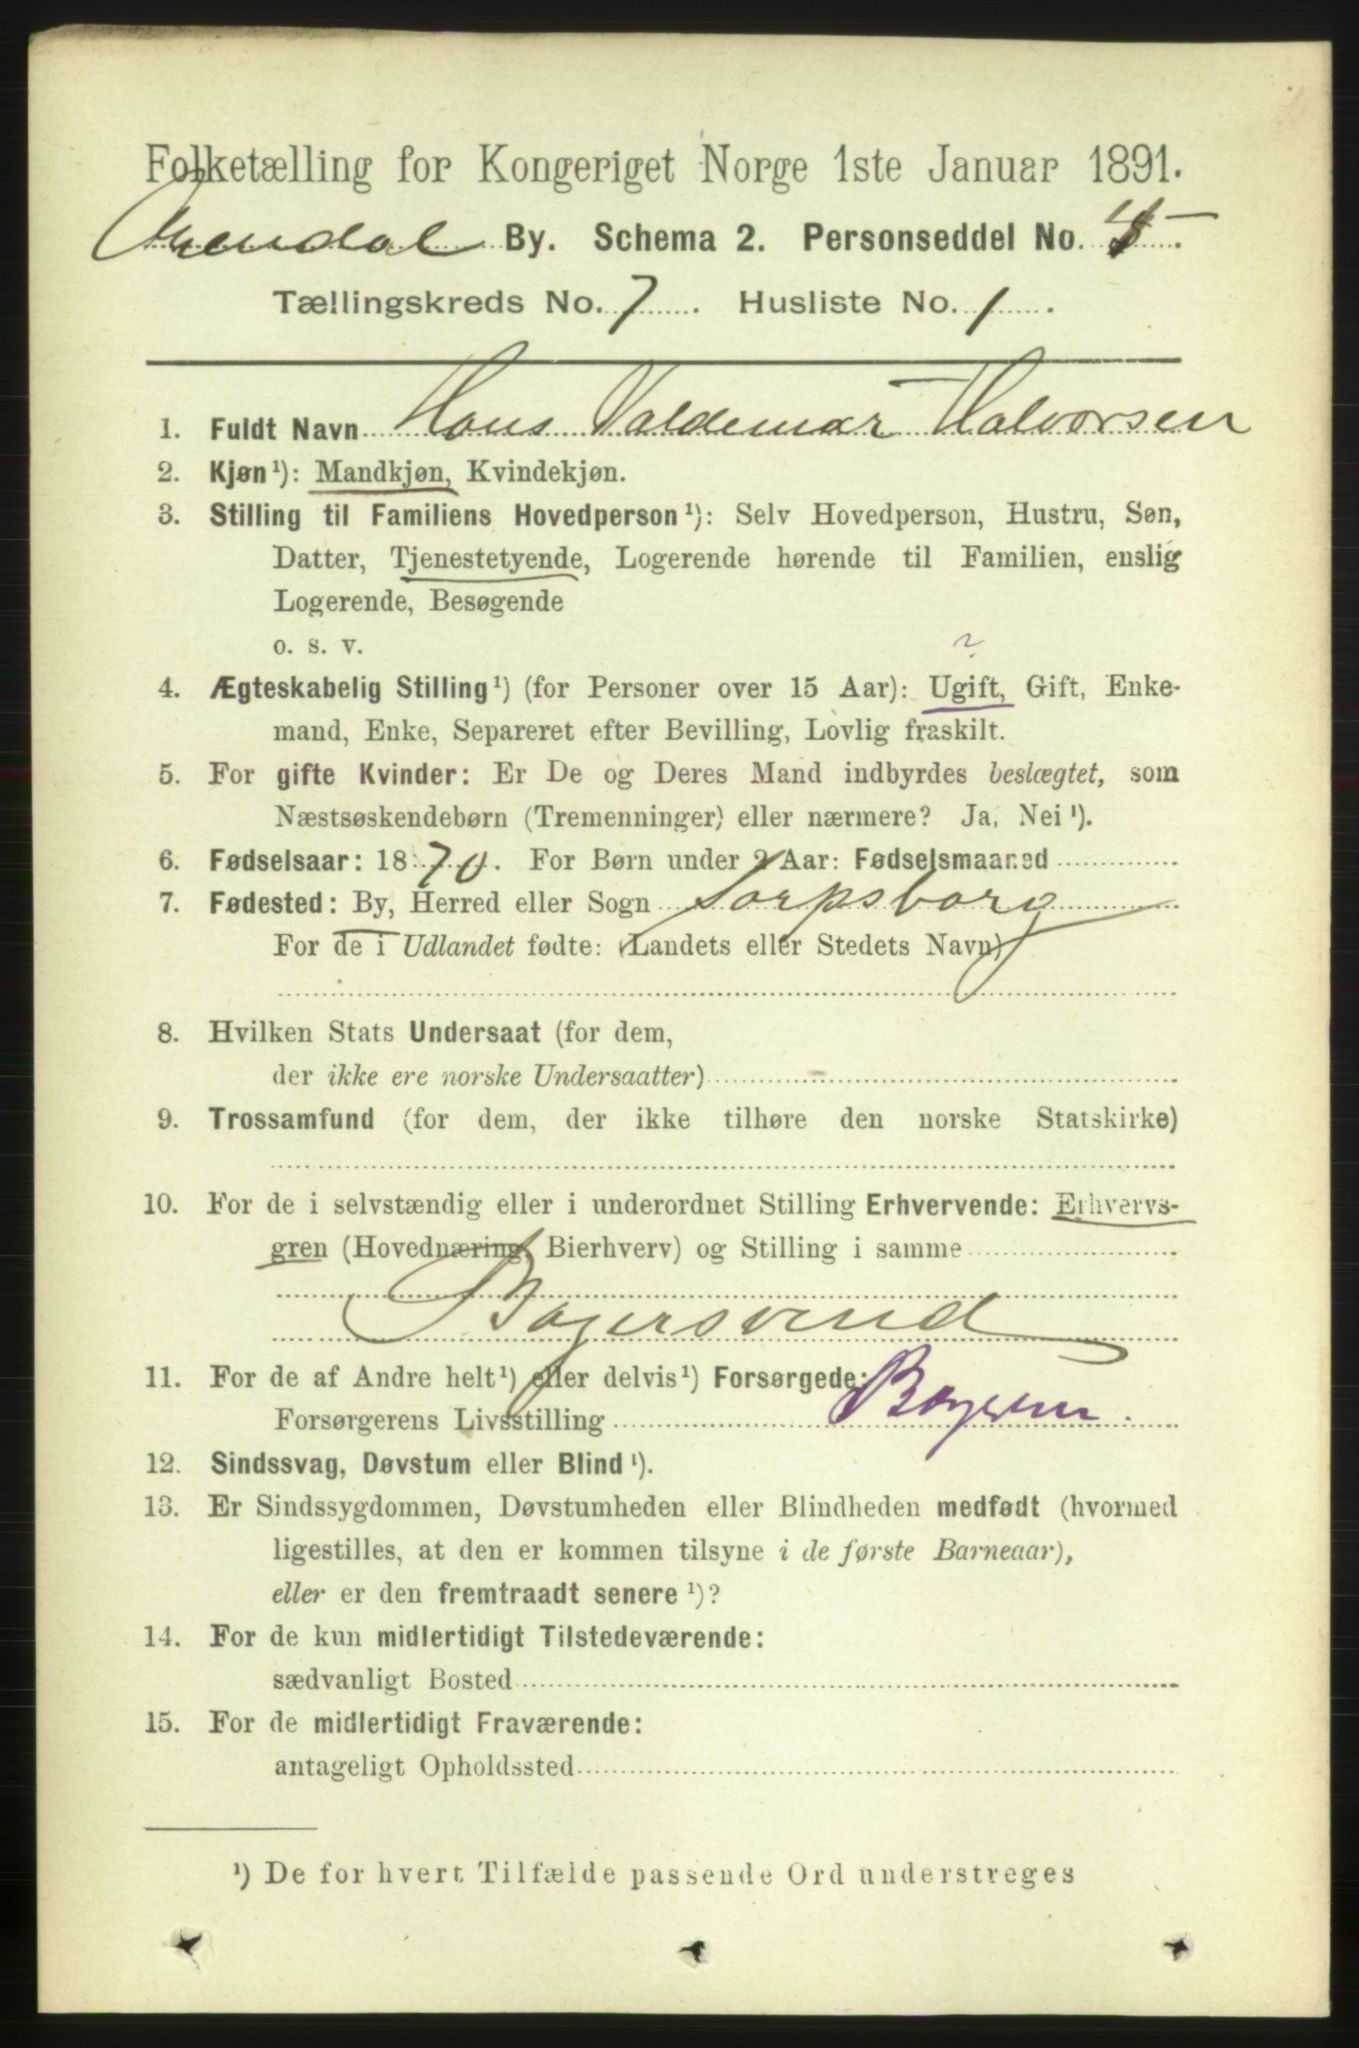 Folketælling for Kongeriget Norge 1ste Januar 1891.
Arendal By. Schema 2. Personseddel No.
Tællingskreds No. 7. Husliste No. 1.
1. Fuldt Navn Hans Valdemar Halvorsen
2. Kjøn¹): Mandkjøn, Kvindekjøn.
3. Stilling til Familiens Hovedperson¹): Selv Hovedperson, Hustru, Søn,
Datter, Tjenestetyende, Logerende hørende til Familien, enslig
Logerende, Besøgende
o. s. v. ?
4. Ægteskabelig Stilling¹) (for Personer over 15 Aar): Ugift, Gift, Enke-
mand, Enke, Separeret efter Bevilling, Lovlig fraskilt.
5. For gifte Kvinder: Er De og Deres Mand indbyrdes beslægtet, som
Næstsøskendebørn (Tremenninger) eller nærmere? Ja, Nei¹).
6. Fødselsaar: 1870. For Børn under 2 Aar: Fødselsmaaned
7. Fødested: By, Herred eller Sogn Sarpsborg
For de i Udlandet fødte: (Landets eller Stedets Navn)
8. Hvilken Stats Undersaat (for dem,
der ikke ere norske Undersaatter)
9. Trossamfund (for dem, der ikke tilhøre den norske Statskirke)
10. For de i selvstændig eller i underordnet Stilling Erhvervende: Erhvervs-
gren (Hovednæring, Bierhverv) og Stilling i samme
Bagersvend
11. For de af Andre helt¹) eller delvis¹) Forsørgede:
Forsørgerens Livsstilling
12. Sindssvag, Døvstum eller Blind¹).
13. Er Sindssygdommen, Døvstumheden eller Blindheden medfødt (hvormed
ligestilles, at den er kommen tilsyne i de første Barneaar),
eller er den fremtraadt senere¹)?
14. For de kun midlertidigt Tilstedeværende:
sædvanligt Bosted
15. For de midlertidigt Fraværende:
antageligt Opholdssted
¹) De for hvert Tilfælde passende Ord understreges